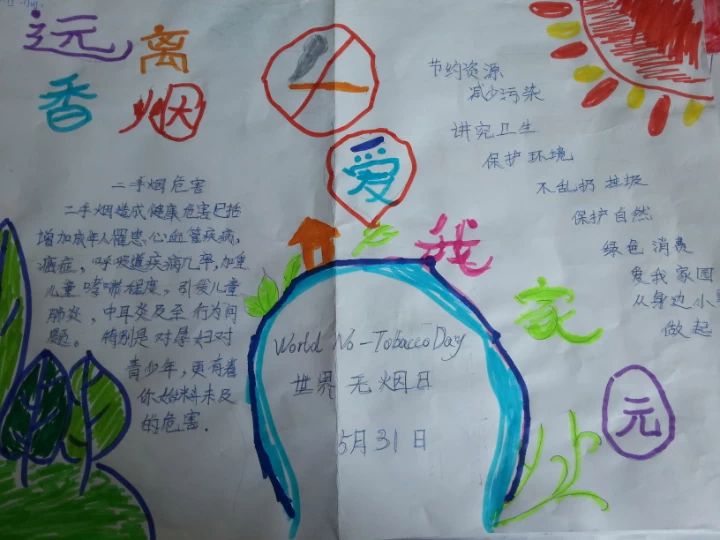 远离
香烟
二手烟危害
二手烟造成健康危害包括
增加成年人罹患心血管疾病,
癌症,呼吸道疾病几率,加重
儿童哮喘程度,引发儿童
肺炎,中耳炎及至行为问
题。特别是对孕妇对
青少年,更有着
你始料未及
的危害.
爱
我
家
元
World No-Tobacco Day
世界无烟日
5月31日
节约资源
减少污染
讲究卫生
保护环境
不乱扔垃圾
保护自然
绿色消费
爱我家园
从身边小
做起